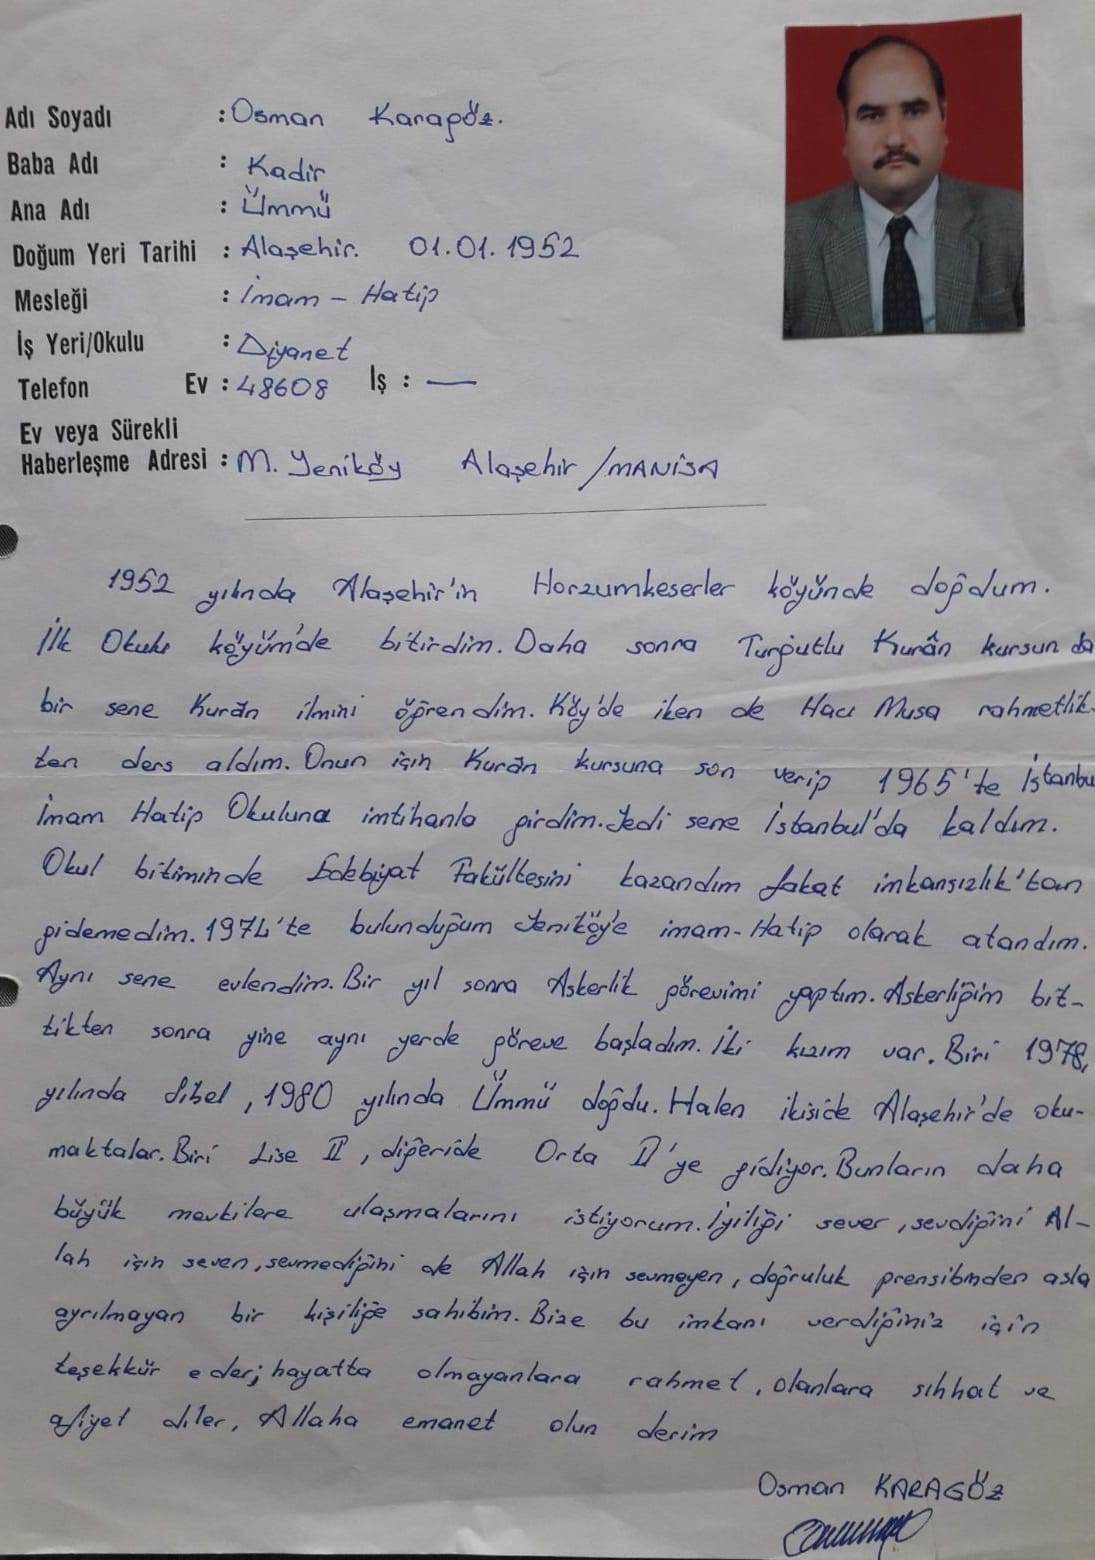 Adı Soyadı : Osman Karagöz.
Baba Adı : Kadir
Ana Adı : Ümmü
Doğum Yeri Tarihi : Alaşehir. 01.01.1952
Mesleği : İmam - Hatip
İş Yeri/Okulu : Diyanet
Telefon Ev : 48608 İş : —
Ev veya Sürekli
Haberleşme Adresi : M. Yeniköy Alaşehir /MANİSA
1952 yılında Alaşehir'in Horzumkeserler köyünde doğdum.
İlk Okulu köyüm'de bitirdim. Daha sonra Turgutlu Kurân kursunda
bir sene Kurân ilmini öğrendim. Köy'de iken de Hacı Musa rahmetlik-
ten ders aldım. Onun için Kurân kursuna son verip 1965'te İstanbu
İmam Hatip Okuluna imtihanla girdim. Yedi sene İstanbul'da kaldım.
Okul bitiminde Edebiyat Fakültesini kazandım fakat imkansızlık'tan
gidemedim. 1974'te bulunduğum Yeniköy'e imam-Hatip olarak atandım.
Aynı sene evlendim. Bir yıl sonra Askerlik görevimi yaptım. Askerliğim bit-
tikten sonra yine aynı yerde göreve başladım. İki kızım var. Biri 1978,
yılında Sibel, 1980 yılında Ümmü doğdu. Halen ikiside Alaşehir'de oku-
maktalar. Biri Lise II, diğeride Orta II'ye gidiyor. Bunların daha
büyük mevkilere ulaşmalarını istiyorum. İyiliği sever, sevdiğini Al-
lah için seven, sevmediğini de Allah için sevmeyen, doğruluk prensibinden asla
ayrılmayan bir kişiliğe sahibim. Bize bu imkanı verdiğiniz için
teşekkür eder; hayatta olmayanlara rahmet, olanlara sıhhat ve
afiyet diler, Allaha emanet olun derim
Osman KARAGÖZ